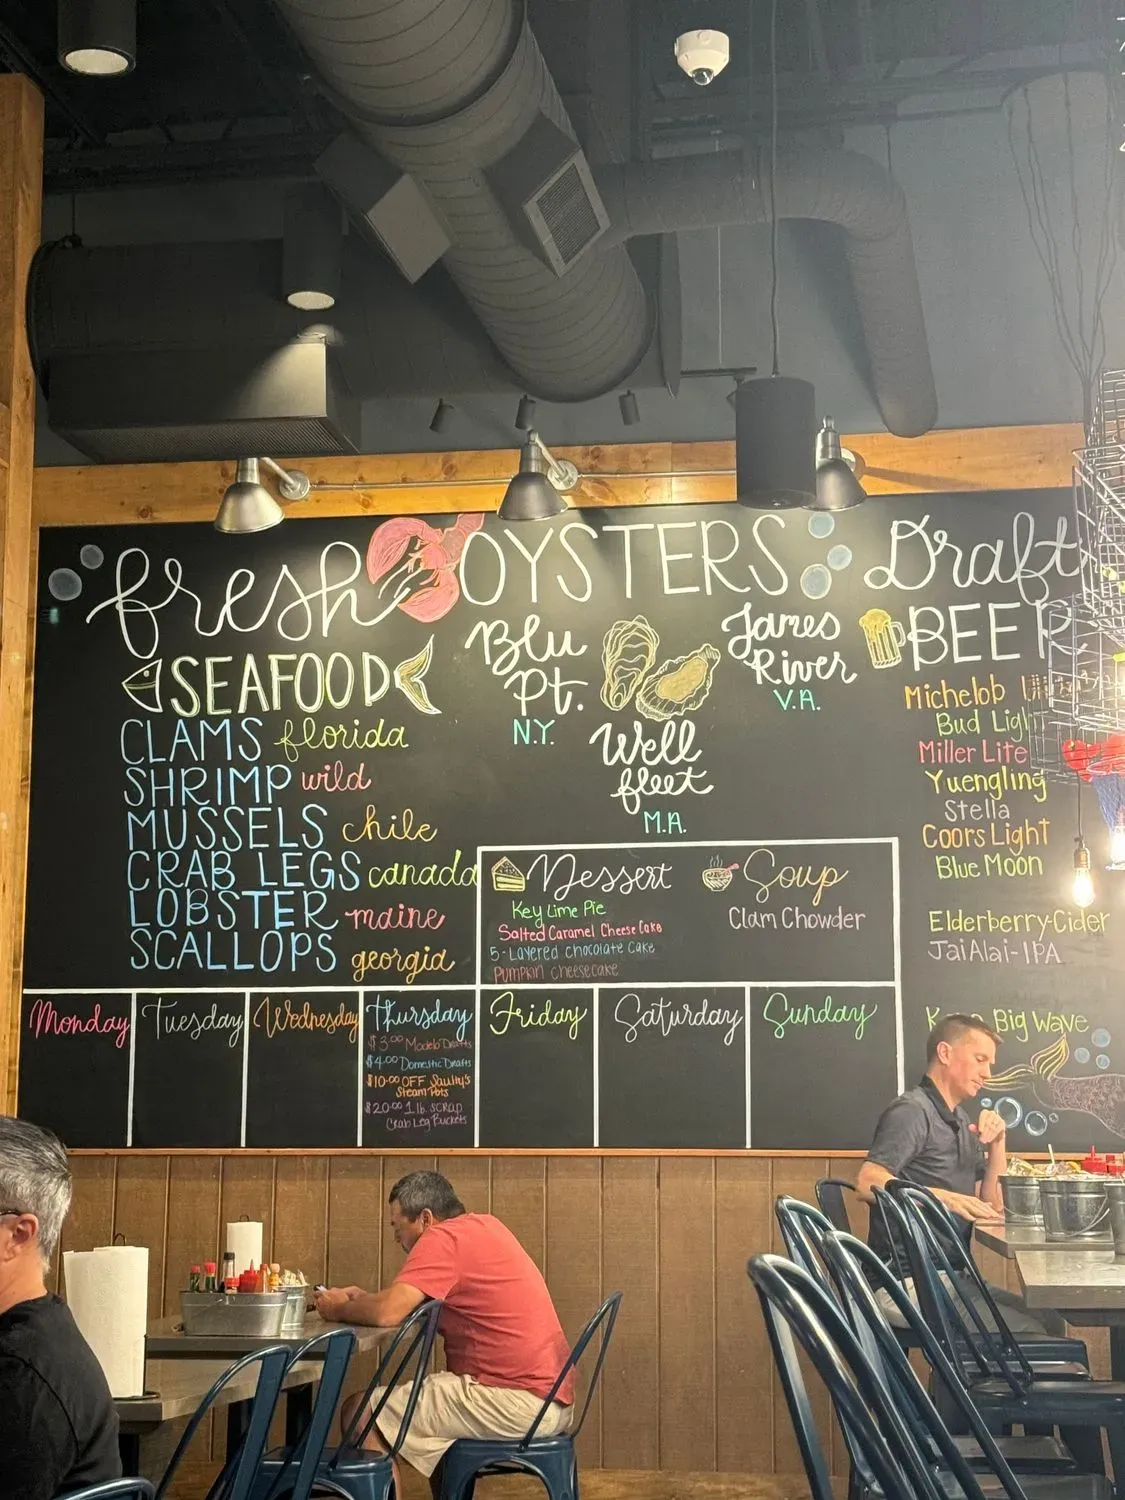 fresh
SEAFOOD
CLAMS florida
SHRIMP wild
MUSSELS chile
CRAB LEGS canada
LOBSTER maine
SCALLOPS georgia
OYSTERS
Blu
Pt.
N.Y.
Well
fleet
M.A.
James
River
V.A.
Draft
BEER
Michelob
Bud Light
Miller Lite
Yuengling
Stella
Coors Light
Blue Moon
Elderberry-Cider
JaiAlai-IPA
Big Wave
Dessert
Key Lime Pie
Salted Caramel Cheese Cake
5-Layered chocolate Cake
Pumpkin cheesecake
Soup
Clam Chowder
Monday
Tuesday
Wednesday
Thursday
$3.00 Modelo Drafts
$4.00 Domestic Drafts
$10.00 OFF Saulty's
Steam Pots
$20.00 1 lb. scrap
Crab Leg Buckets
Friday
Saturday
Sunday